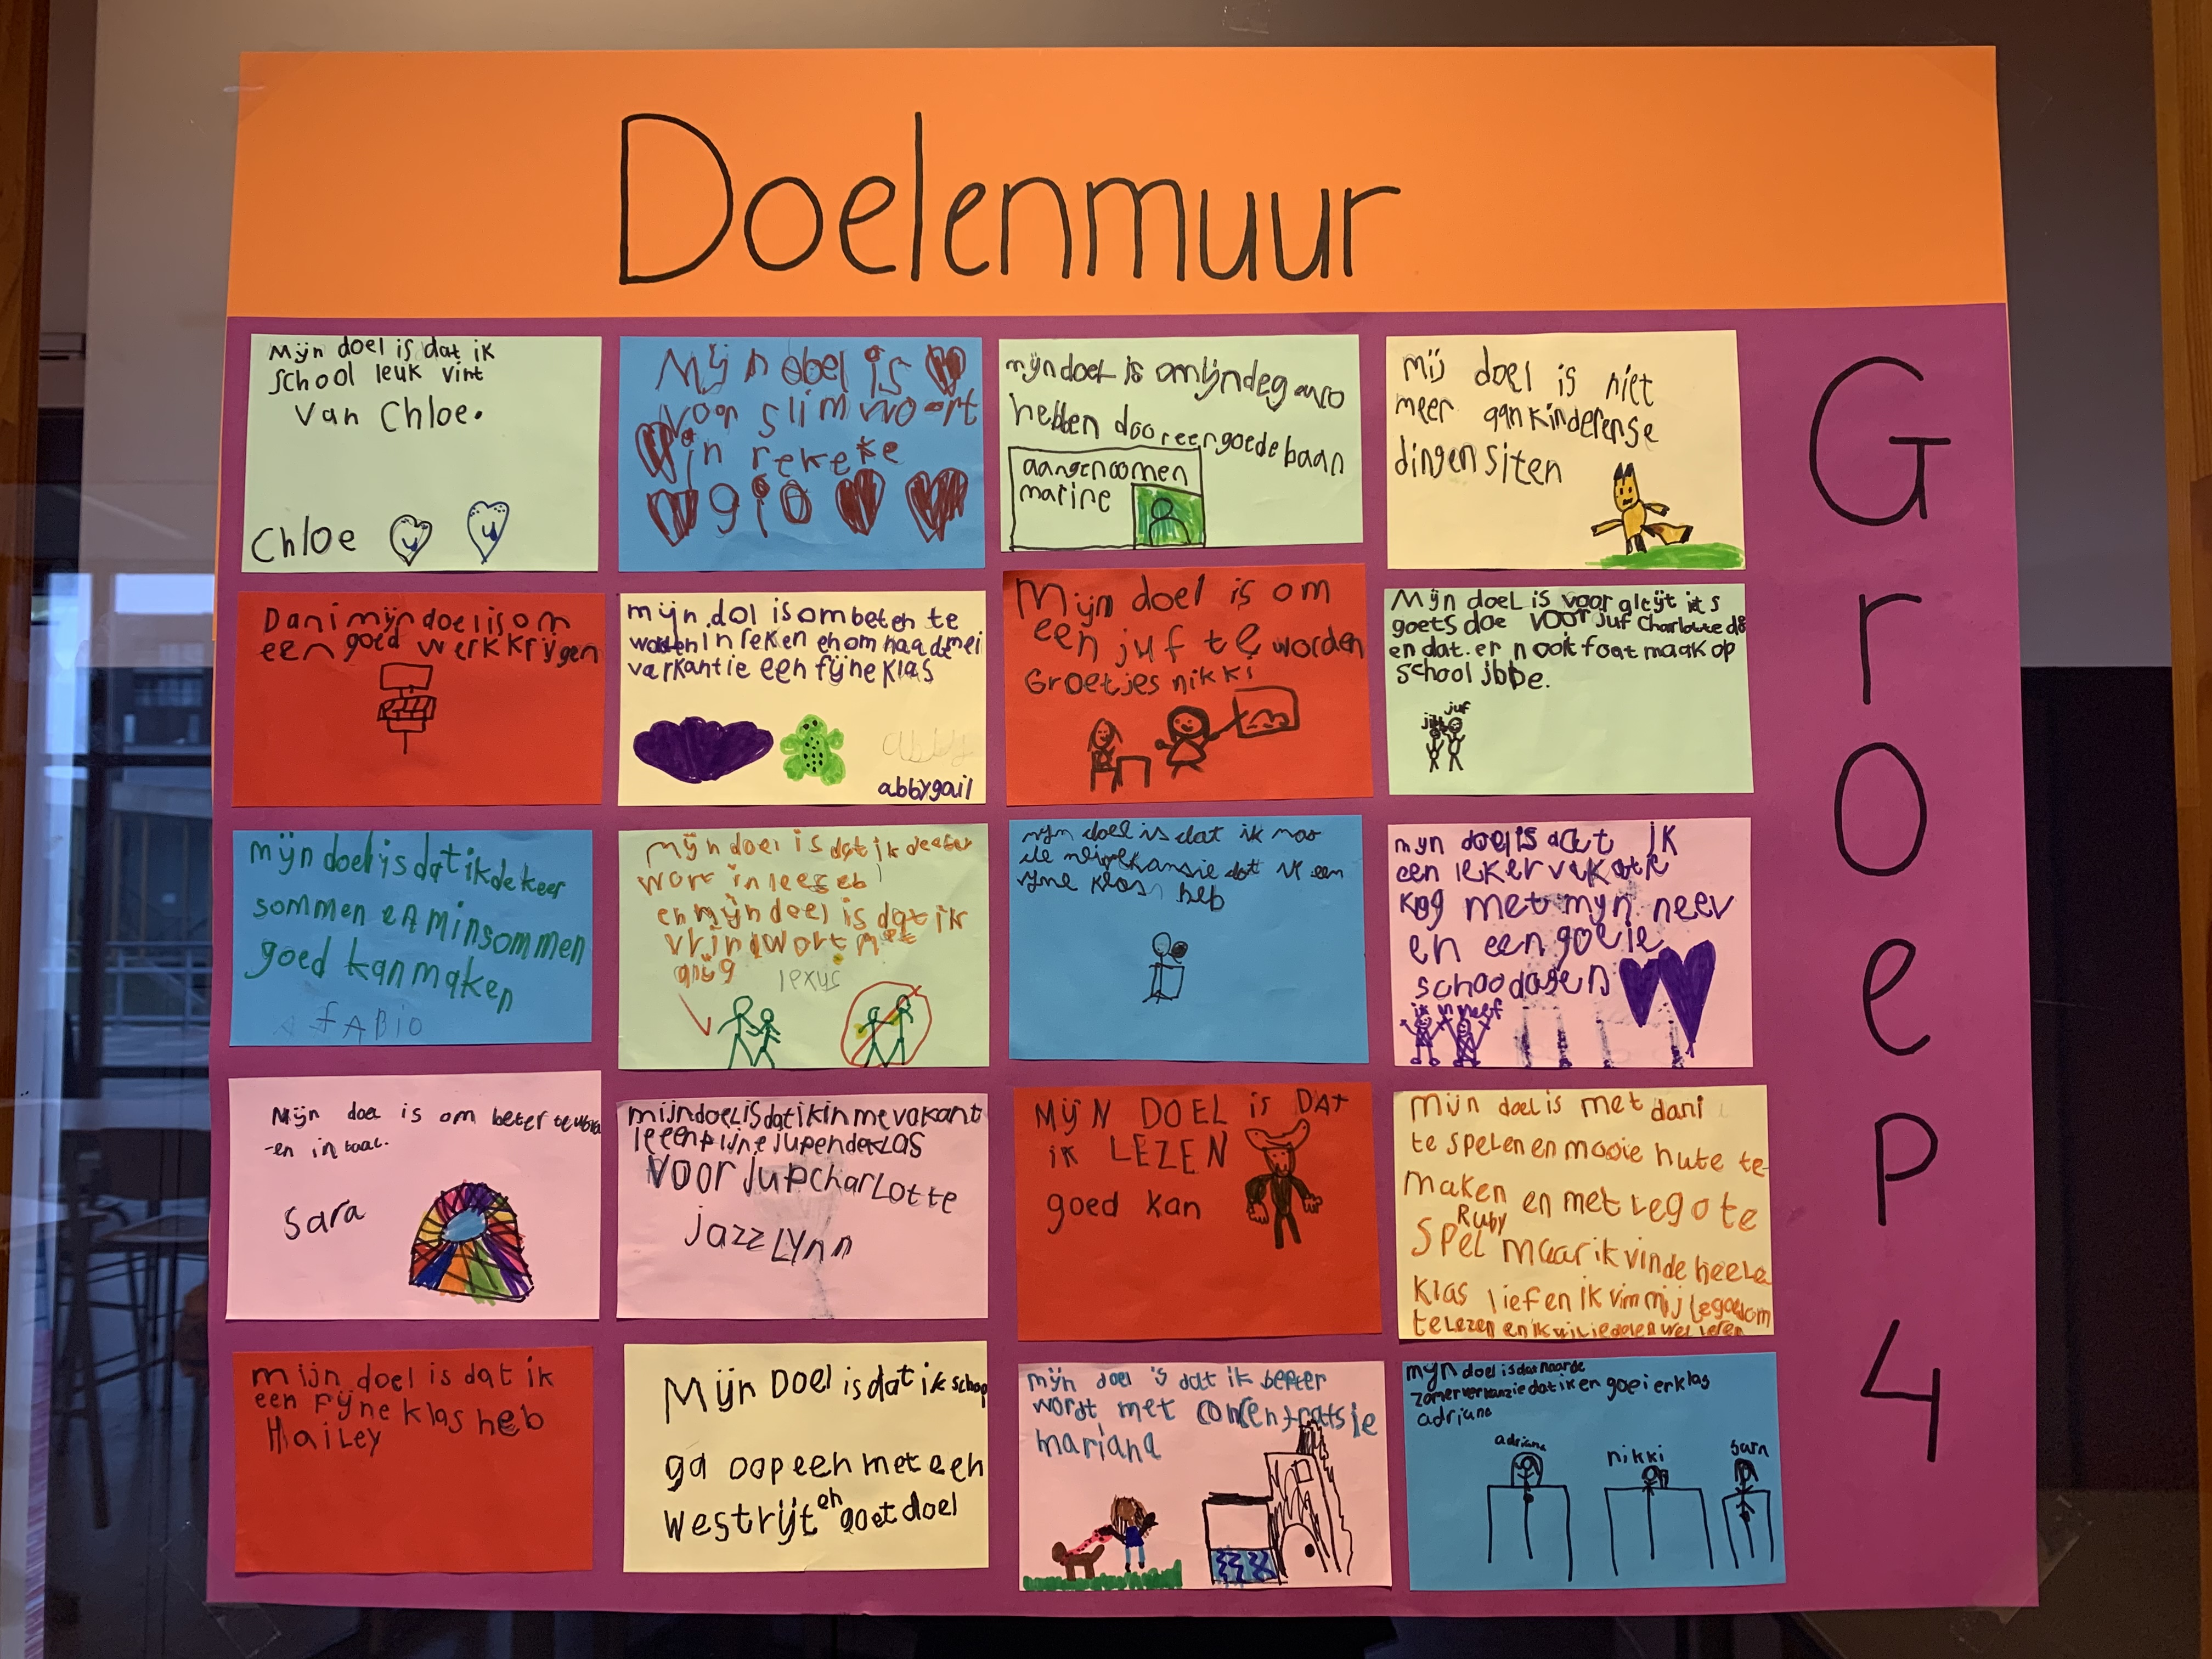 Doelenmuur
Groep 4
Mijn doel is dat ik
school leuk vint
van Chloe.
Chloe
Mijn doel is
voor slim woort
in rekeke
gio
mijn doel is om
hebben door een goede baan
aangenoomen
marine
mij doel is niet
meer aan kinderen se
dingen siten
Dani mijn doel is om
een goed werk krijgen
mijn dol is om beten te
worten in reken en om na de mei
varkantie een fijne klas
abby
abbygail
Mijn doel is om
een juf te worden
Groetjes nikki
Mijn doel is voor altijt iets
goets doe voor juf Charlotte
en dat. er nooit foat maak op
school jbbe.
juf
mijn doel is dat ik de keer
sommen en minsommen
goed kan maken
fABio
mijn doel is dat ik beeter
wort in lees
en mijn doel is dat ik
vrint wort met
lexus
mijn doel is dat ik naar
dat ik een
fijne klas heb
mijn doel is dat ik
een leker vakatie
kag met mijn neev
en een goeie
schoodagen
ik n neef
Mijn doel is om beter te worden
-en in taal.
Sara
mijn doel is dat ik in me vakant
ie een pijne jup en de klas
voor jup charLotte
jazzLynn
MijN DOEL is DAT
ik LEZEN
goed kan
mijn doel is met dani
te spelen en mooie hute te-
maken en met Lego te
Ruby
spel maar ik vinde heele
klas lief en ik vim mij
te Lezen en ik wil
mijn doel is dat ik
een Fijne klas heb
HaiLey
Mijn Doel is dat ik schop
ga oop een met een
westrijt en goet doel
mijn doel is dat ik beeter
wordt met concentratsie
mariana
mijn doel is dat naar de
zomer verkanzie dat ik en goei er klas
adriana
adriana nikki Sara